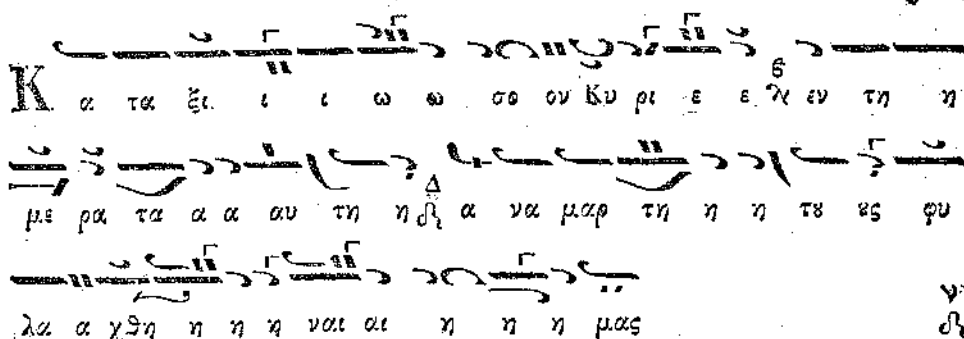 Κ α τα ξι ι ι ω ω σο ον Κυ ρι ε ε εν τη η
με ρα τα α α αυ τη η Δ α να μαρ τη η η τȣ ȣς φυ
λα α χθη η η η ναι αι η η η μας ν